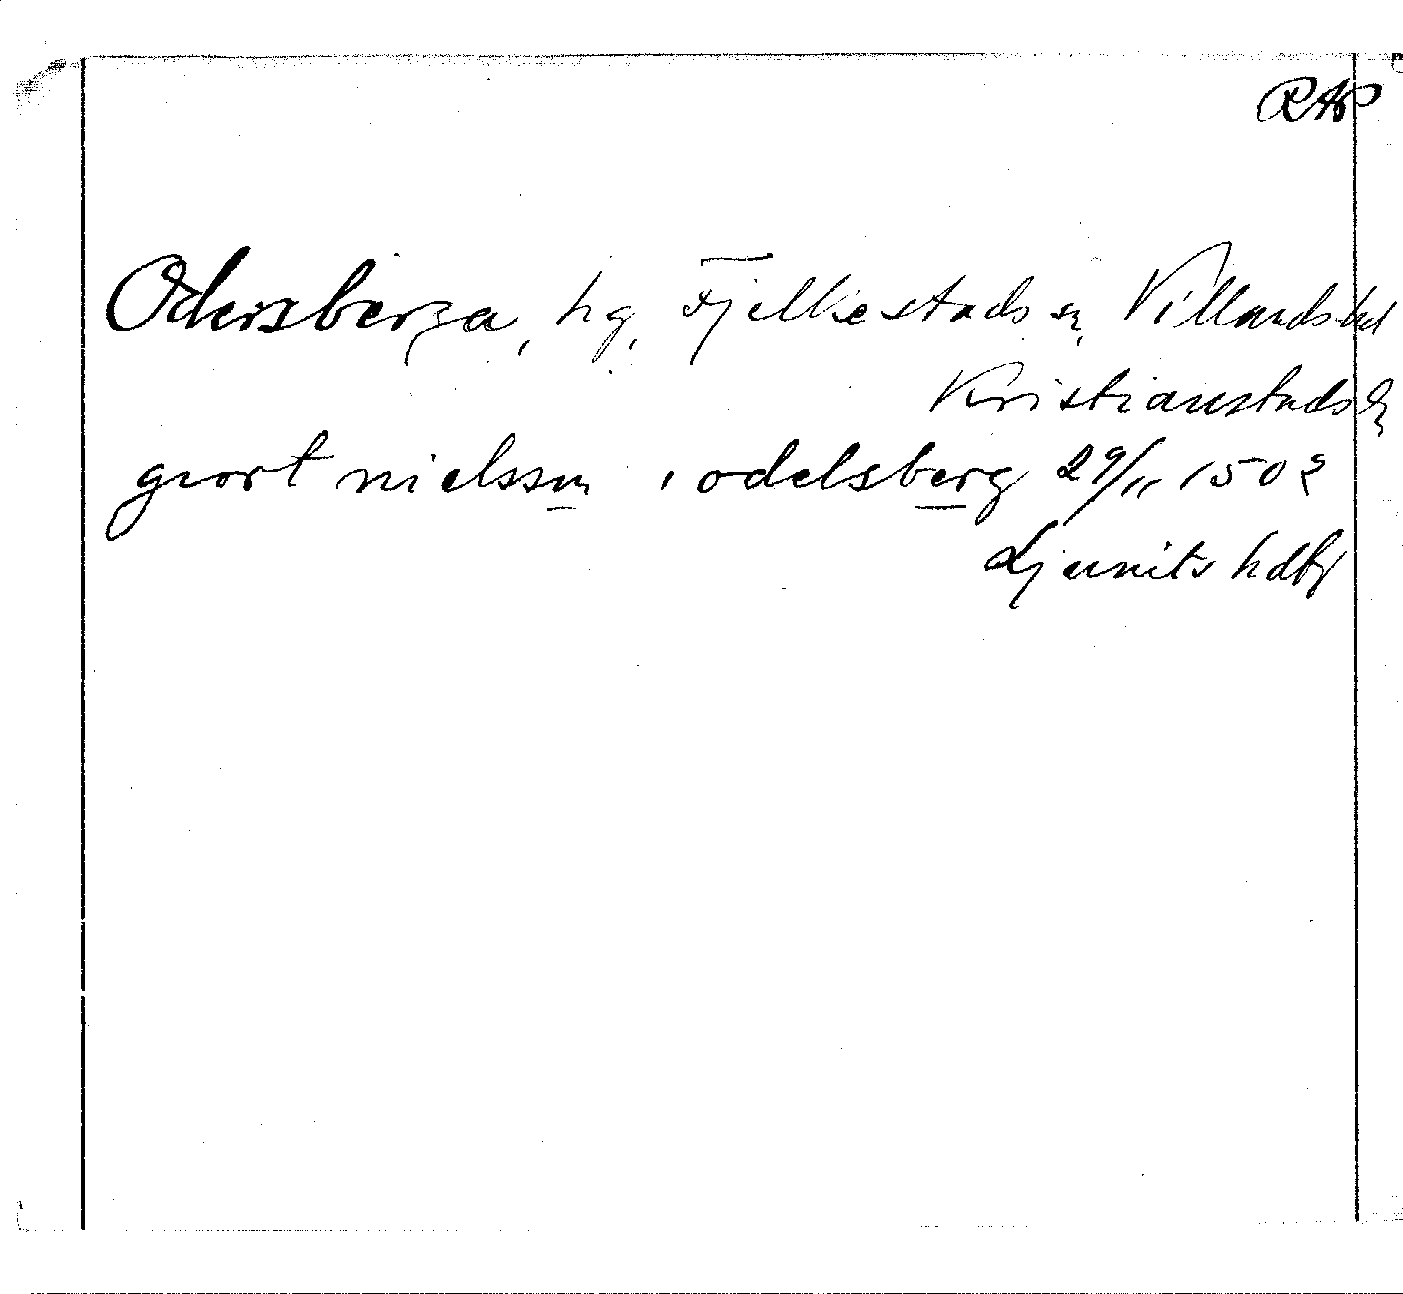 RAP
Odersberga, hg, Fjelkestads sn, Villands hd
Kristianstads l
giort nielssøn i odelsberg 29/11 1502
Ljunits hdbr